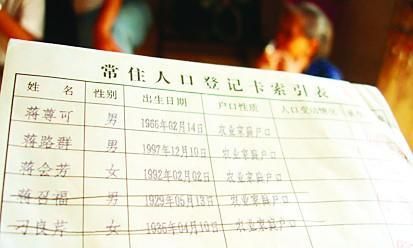 常住人口登记卡索引表
姓名 性别 出生日期 户口性质 人口变动情况
蒋尊可 男 1966年02月14日 农业家庭户口
蒋路群 男 1997年12月10日 农业家庭户口
蒋会芳 女 1992年02月02日 农业家庭户口
蒋召福 男 1929年05月13日 农业家庭户口
刁良芹 女 1935年04月10日 农业家庭户口